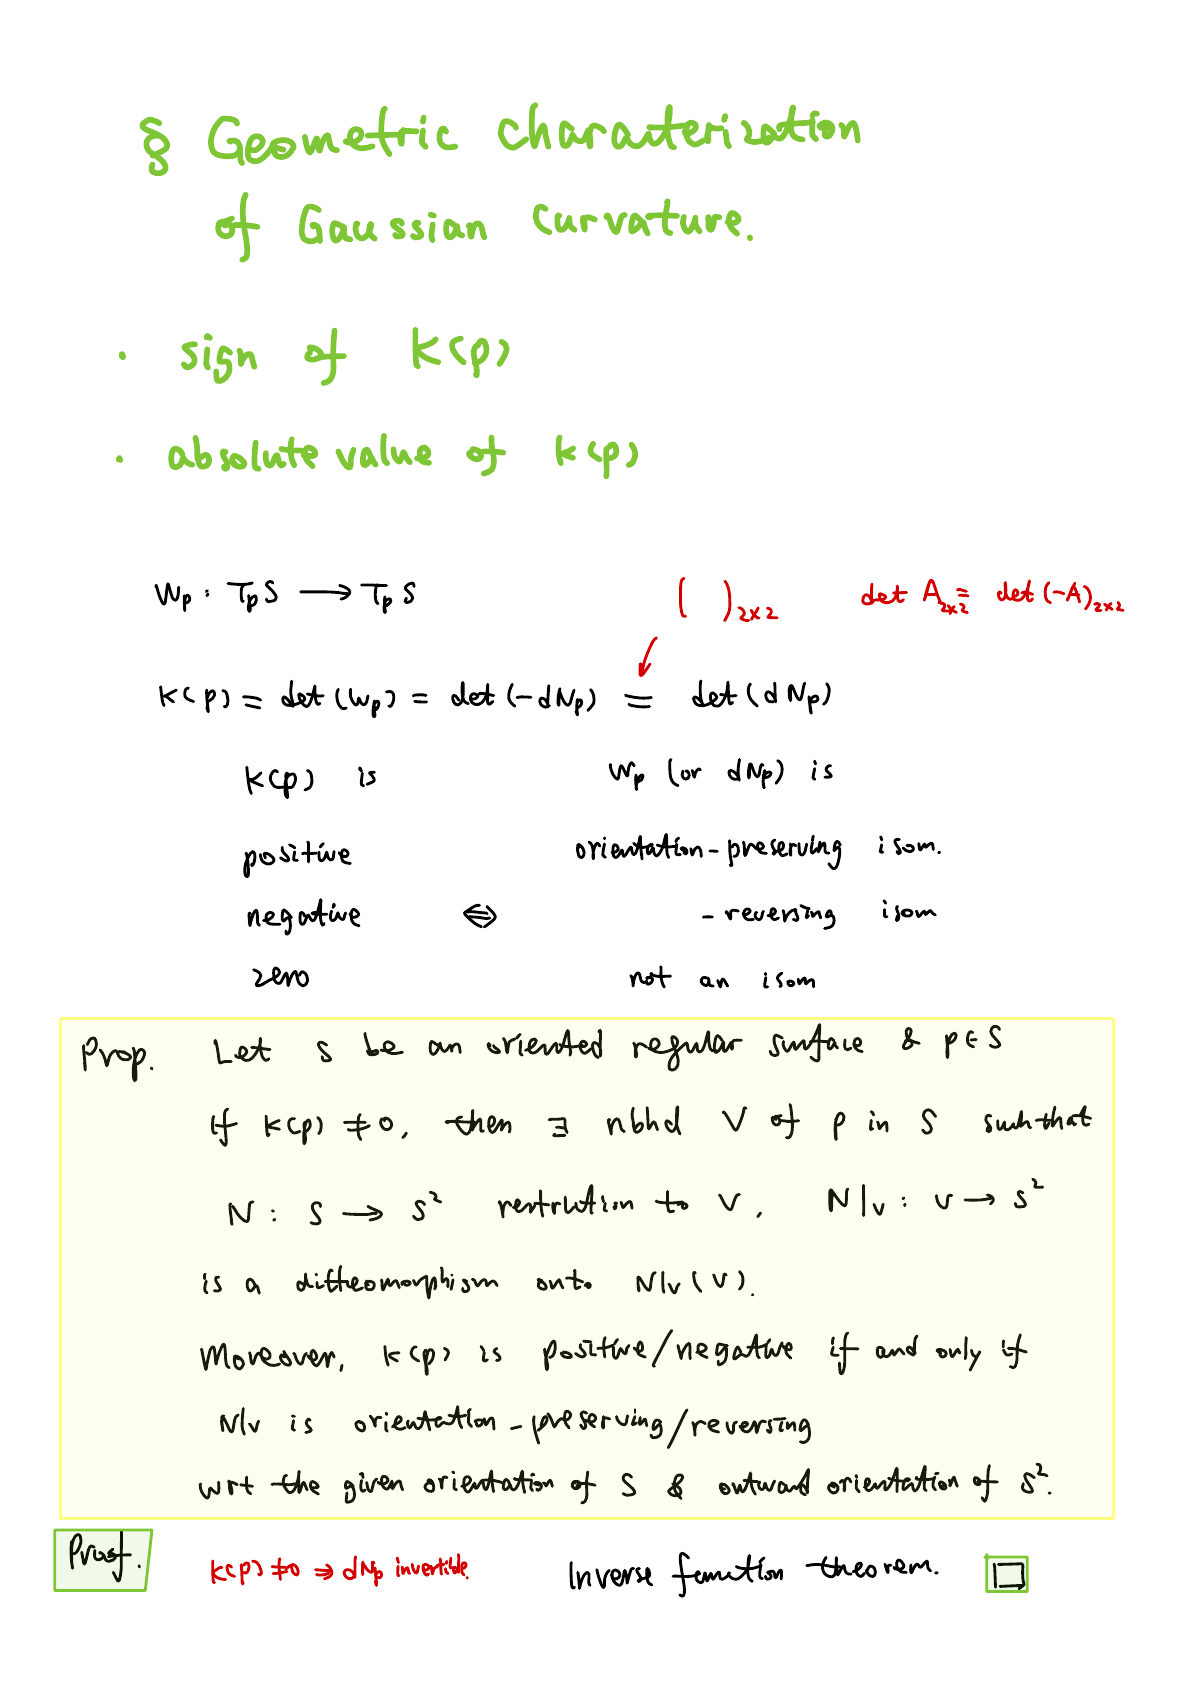 § Geometric characterization
of Gaussian Curvature.
· sign of K(p)
· absolute value of K(p)
W_p : T_pS ⟶ T_pS ( )_{2×2} det A_{2×2} = det (-A)_{2×2}
K(p) = det(W_p) = det(-dN_p) = det(dN_p)
K(p) is W_p (or dN_p) is
positive orientation-preserving isom.
negative ⇔ -reversing isom
zero not an isom
Prop. Let S be an oriented regular surface & p∈S
If K(p) ≠ 0, then ∃ nbhd V of p in S such that
N : S ⟶ S² restriction to V, N|_V : V ⟶ S²
is a diffeomorphism onto N|_V(V).
Moreover, K(p) is positive/negative if and only if
N|_V is orientation-preserving/reversing
wrt the given orientation of S & outward orientation of S².
Proof. K(p)≠0 ⇒ dN_p invertible. Inverse function theorem. □